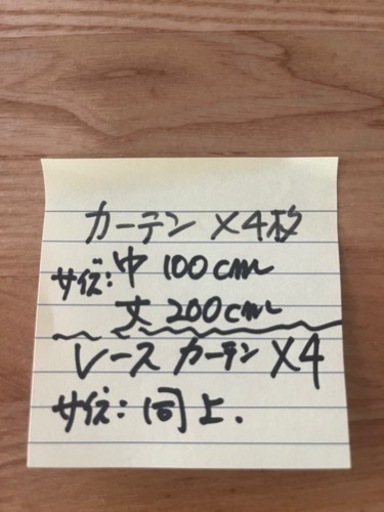 カーテン ×4枚
サイズ: 巾 100cm
丈 200cm
レースカーテン ×4
サイズ: 同上.